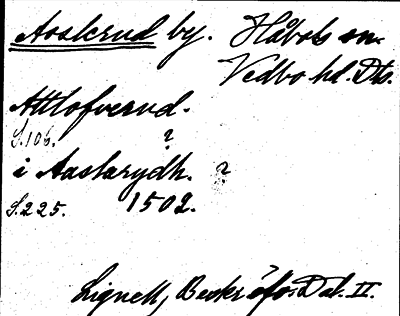 Aoskrud by. Håbols sn.
Vedbo hd. Dls.
Attlofverud.
S. 106. ?
i Aastarydh. ?
S. 225. 1502.
Lignell, Beskr. öfv. Dal. II.